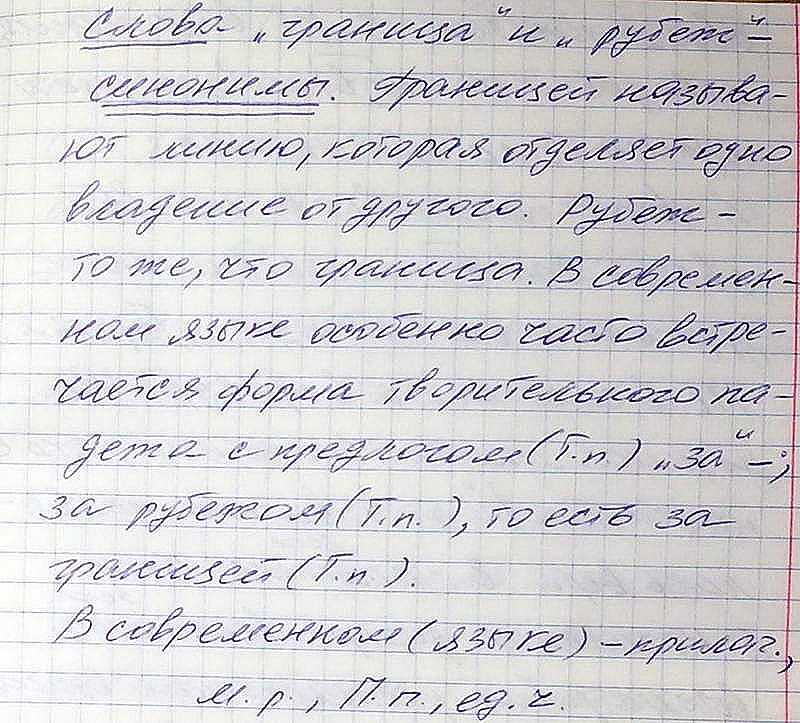 Слова „граница" и „рубеж" –
синонимы. Границей называ-
ют линию, которая отделяет одно
владение от другого. Рубеж –
то же, что граница. В современ-
ном языке особенно часто встре-
чается форма творительного па-
дежа с предлогом (Т.п.) „за" –;
за рубежом (Т.п.), то есть за
границей (Т.п.).
В современном (языке) – прилаг.,
м.р., П.п., ед.ч.